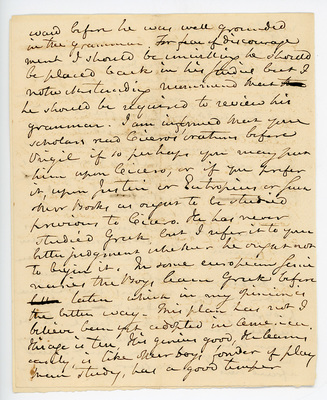 ward before he was well grounded
in the grammar. For fear of discourage
ment I should be unwilling he should
be placed back in his studies but I
notwithstanding recommend that
he should be required to review his
grammar. I am informed that your
scholars read Ciceros orations before
Virgil if so perhaps you may put
him upon Cicero, or if you prefer
it, upon Justin or Eutropius or such
other Books as ought to be studied
previous to Cicero. He has never
studied Greek but I refer it to your
better judgment whether he ought not
to begin it. In some european Semi
naries the Boys learn Greek before
latin which in my opinion is
the better way. This plan has not I
believe been yet adopted in America.
His age is ten, His genius good, He learns
easily, is like other boys fonder of play
than study, has a good temper